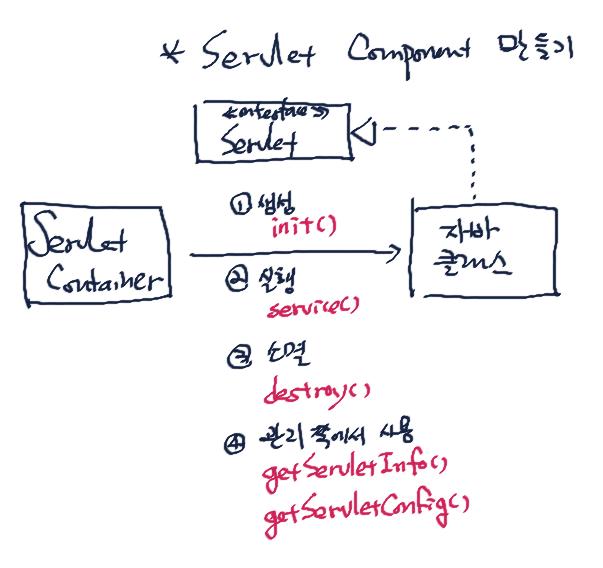 * Servlet Component 만들기
<<interface>>
Servlet
① 생성
init()
Servlet
Container
자바
클래스
② 실행
service()
③ 소멸
destroy()
④ 관리 쪽에서 사용
getServletInfo()
getServletConfig()